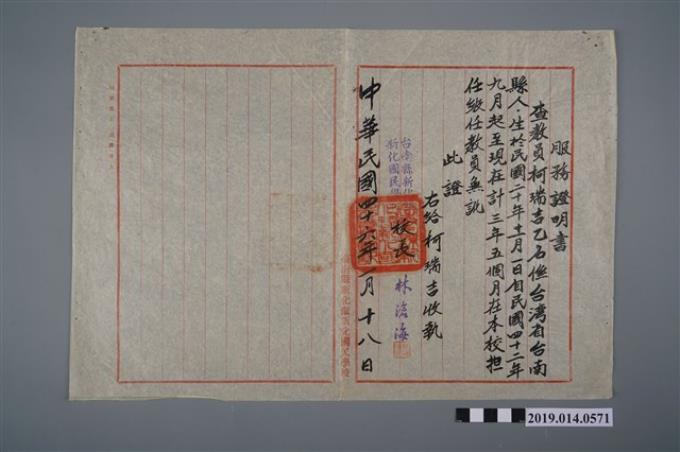 服務證明書
查教員柯瑞吉乙名係台灣省台南
縣人生於民國二十年十二月一日自民國四十二年
九月起至現在計三年五個月在本校担
任級任教員無訛
此證
右給柯瑞吉收執
台南縣新化
新化國民學
校長
林滄海
中華民國四十六年一月十八日
2019.014.0571